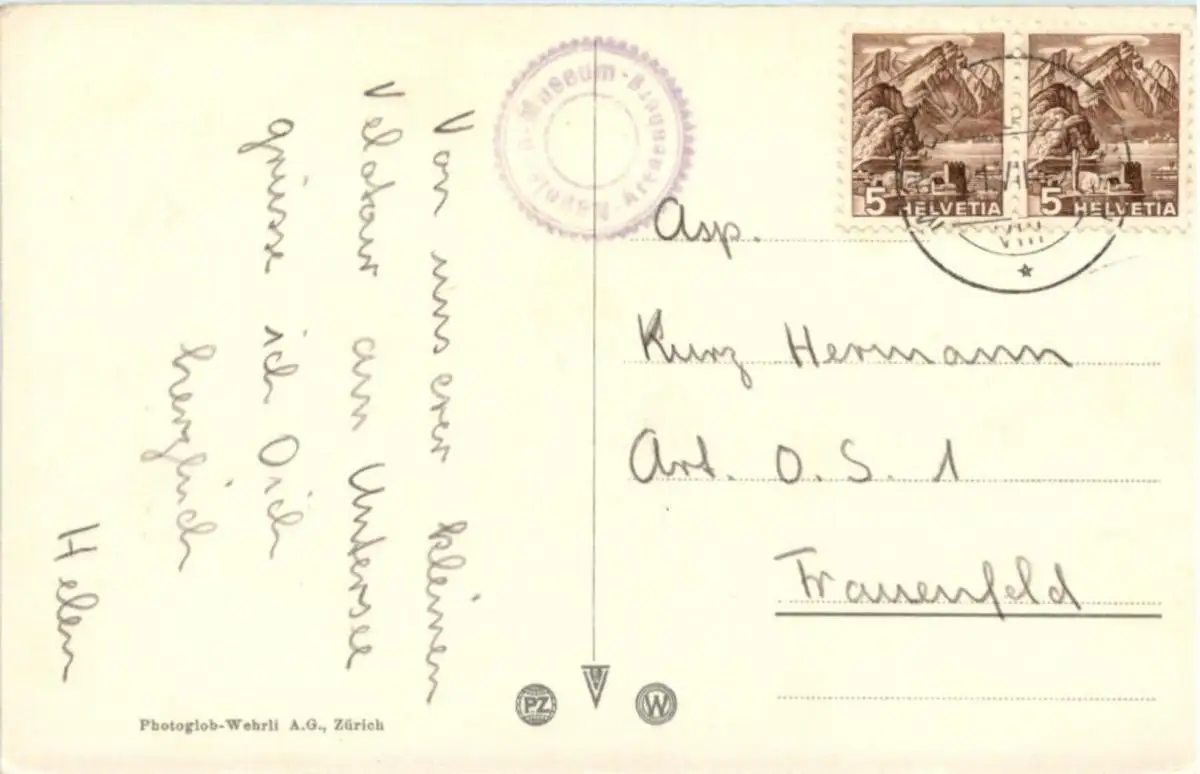 Von unserer kleinen
Velotour am Untersee
grüsse ich Dich
herzlich
Helen
Museum - Arenenberg
Asp.
Kurz Hermann
Art. O. S. 1
Frauenfeld
5 HELVETIA
5 HELVETIA
VIII
PZ
W
Photoglob-Wehrli A.G., Zürich